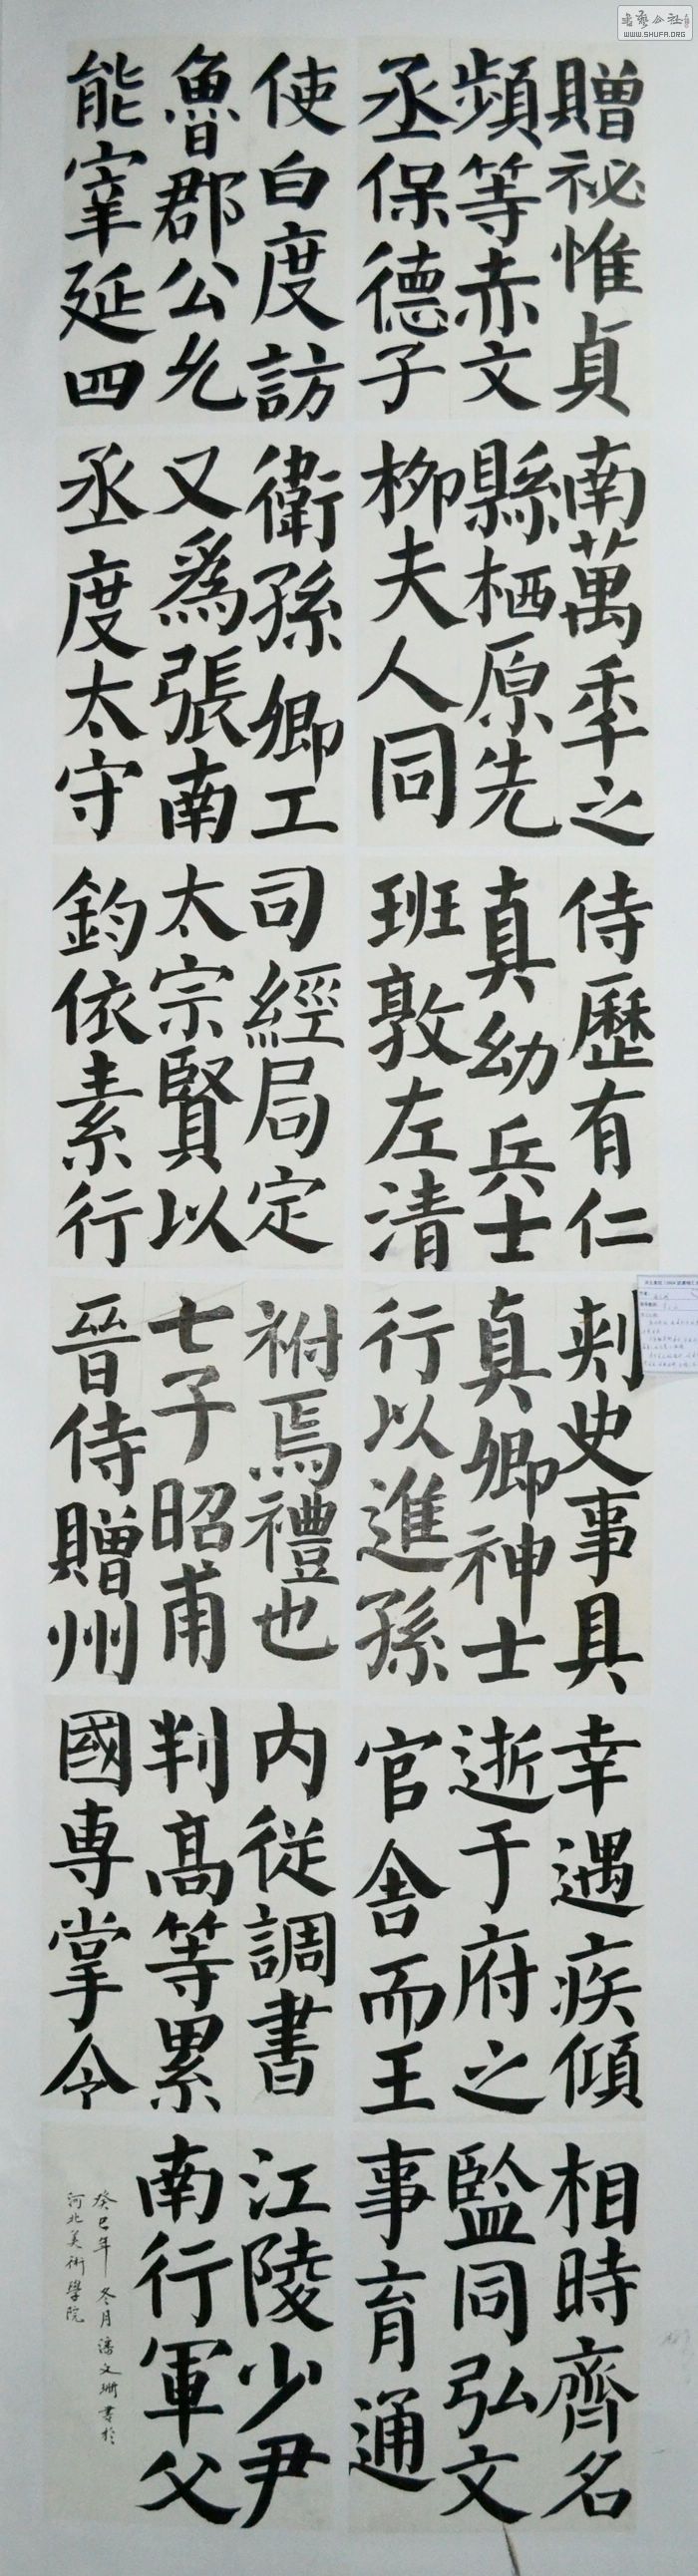 書藝公社
WWW.SHUFA.ORG
贈祕惟貞南萬季之侍歷有仁刾史事具幸遇疾傾相時齊名
頻等赤文縣栖原先真幼兵士真卿神士逝于府之監同弘文
丞保德子柳夫人同班敦左清行以進孫官舍而王事育通
使白度訪衛孫卿工司經局定祔焉禮也内從調書江陵少尹
魯郡公允又爲張南太宗賢以七子昭甫判髙等累南行軍父
能宰延四丞度太守鈞依素行晉侍贈州國專掌令
癸巳年 冬月潘文珊書於
河北美術學院